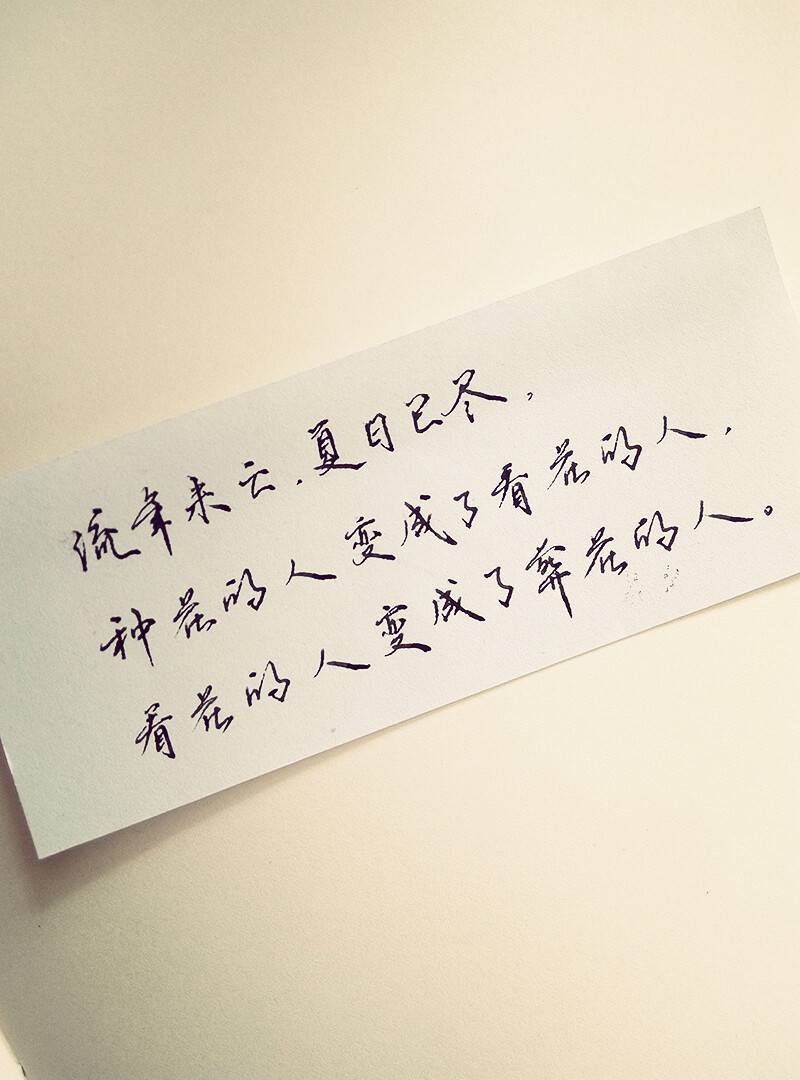 流年来去，夏日已尽，
种花的人变成了看花的人，
看花的人变成了葬花的人。